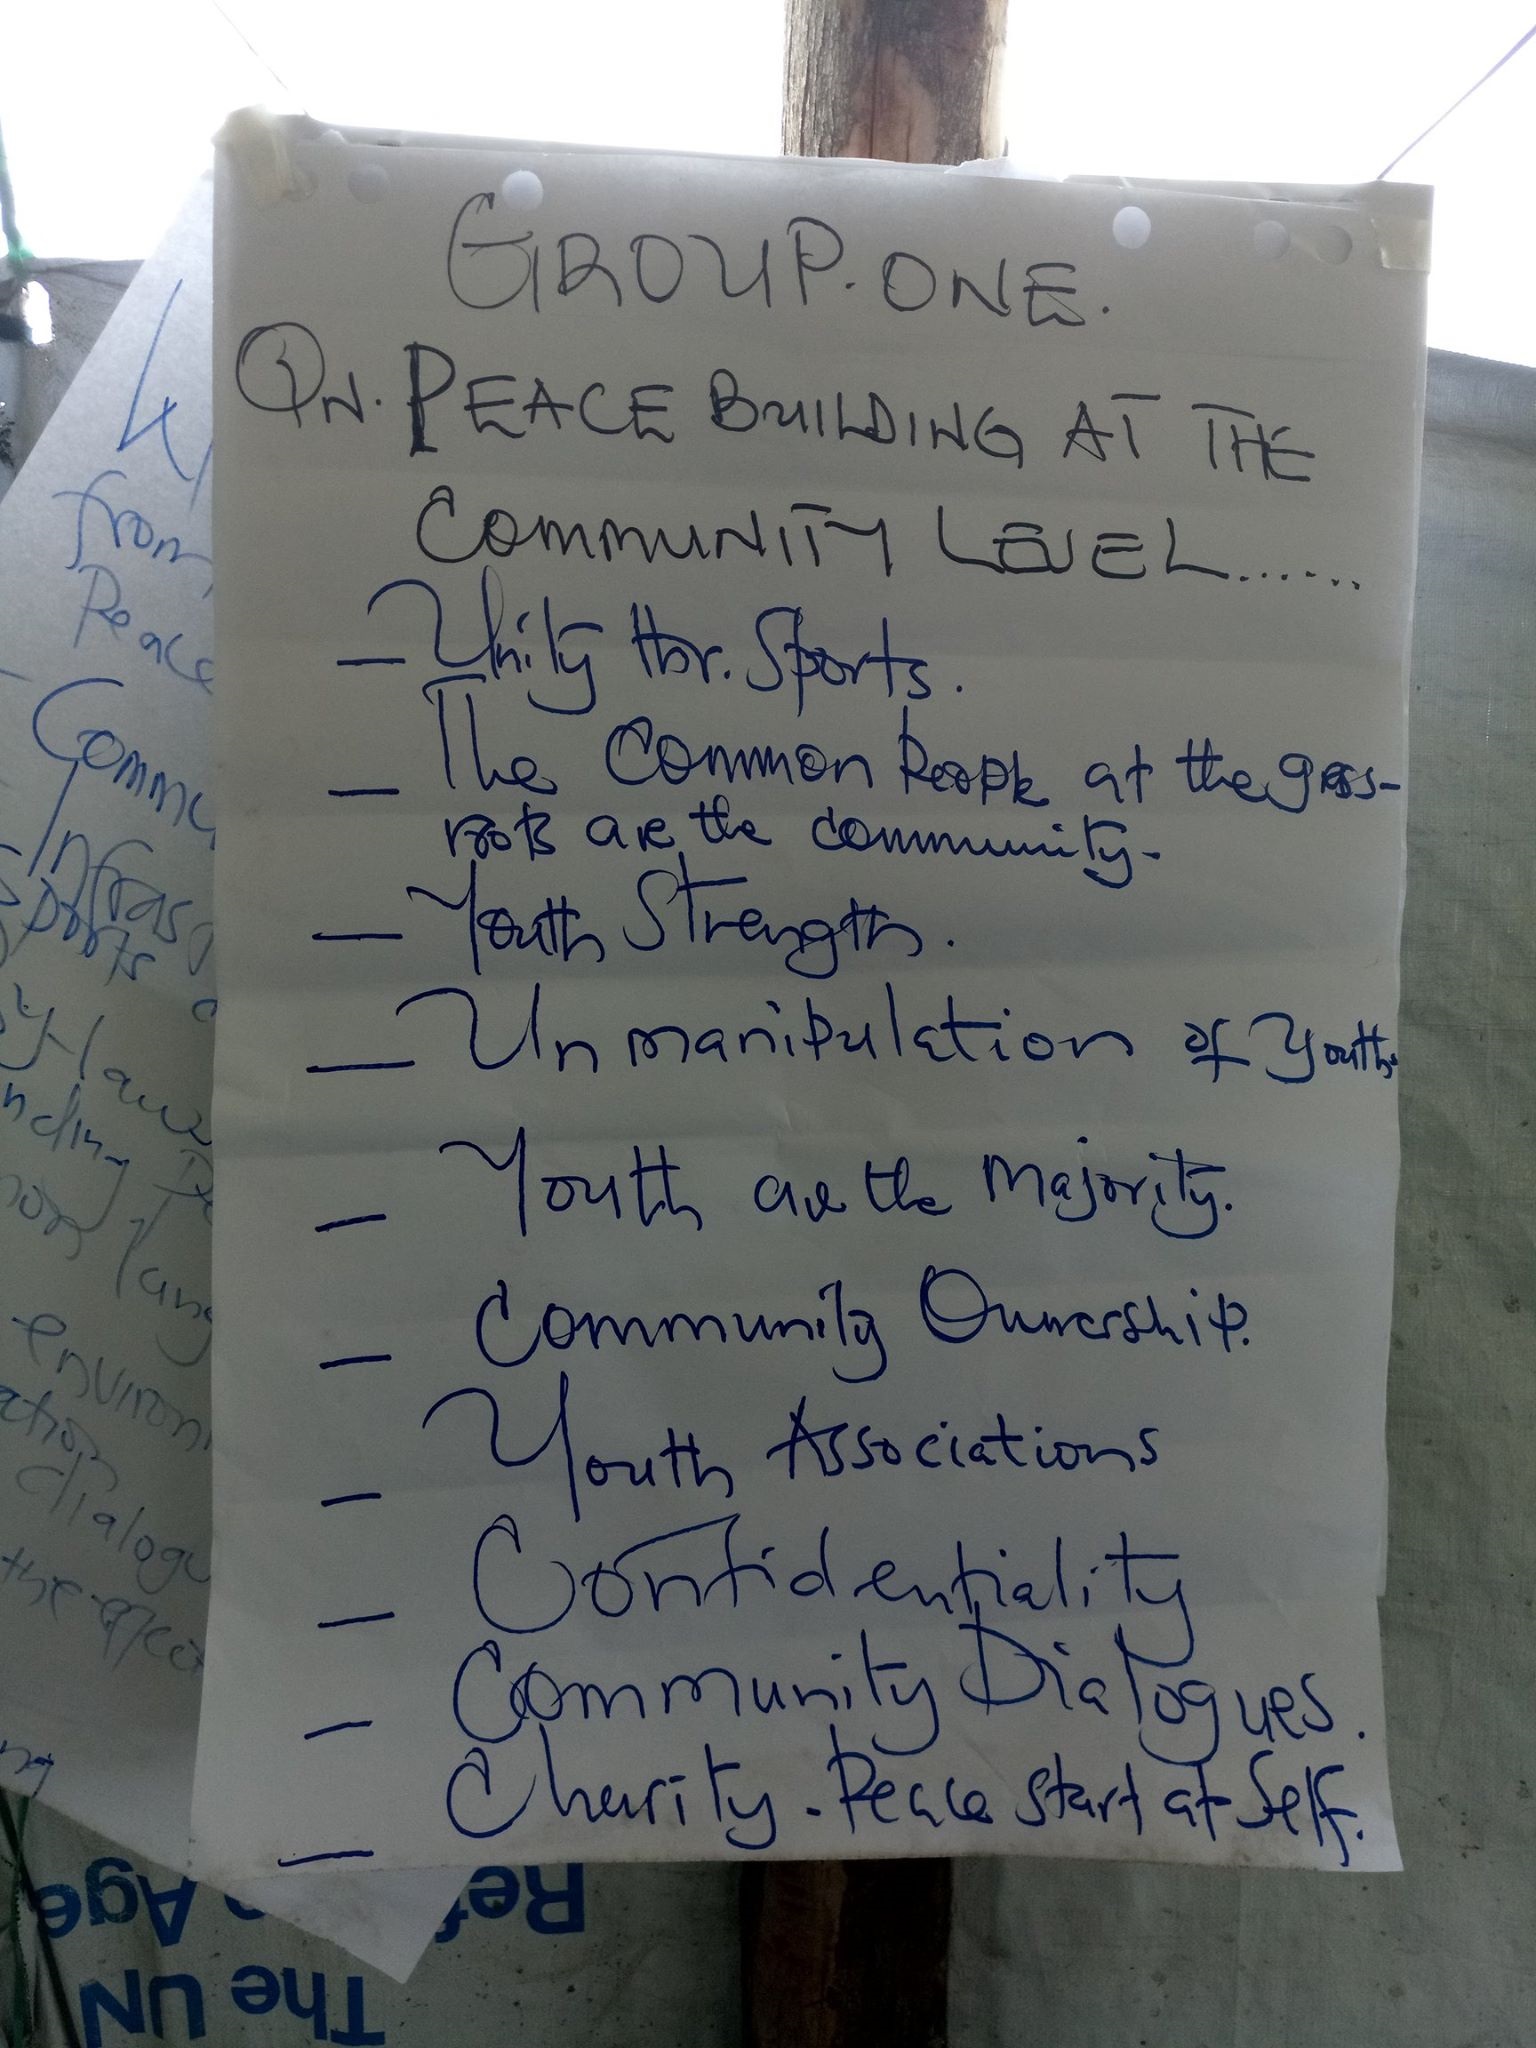 GROUP. ONE.
QN. PEACE BUILDING AT THE
COMMUNITY LEVEL......
— Unity thr. Sports.
— The Common People at the grass-
roots are the community.
— Youth Strength.
— Unmanipulation of Youth.
— Youth are the Majority.
— Community Ownership.
— Youth Associations
— Confidentiality
— Community Dialogues.
— Charity. Peace start at Self.
from
Peace
Commu
Infras
Sports
y-laws
nding
lang
environ
ation
dialogu
the effect
ng
The UN
Ref Age